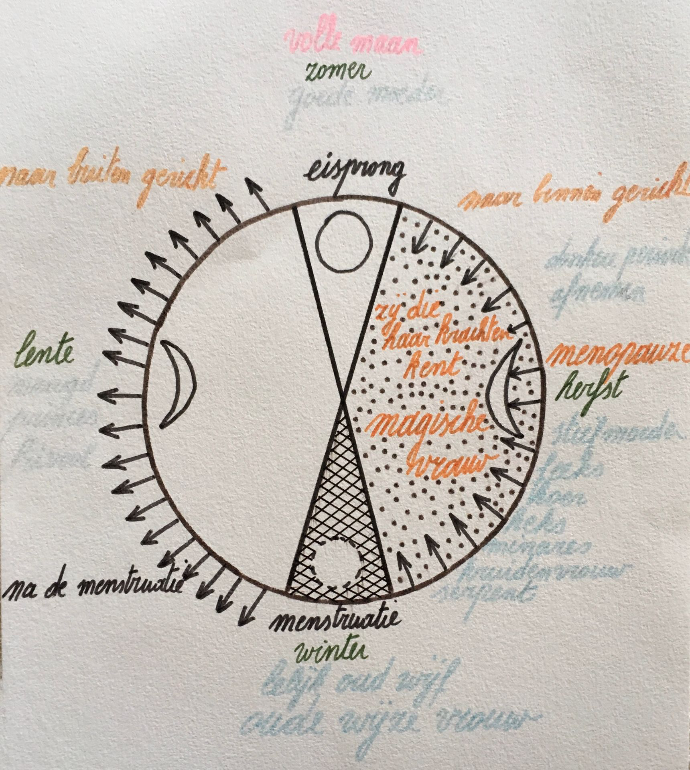 volle maan
zomer
goede moeder
naar buiten gericht
eisprong
naar binnen gericht
donkere periode
afnemen
zij die
haar krachten
kent
lente
menopauze
herfst
maagd
prinses
magische
vrouw
stiefmoeder
feeks
hoer
heks
minares
kruidenvrouw
serpent
na de menstruatie
menstruatie
winter
lelijk oud wijf
oude wijze vrouw